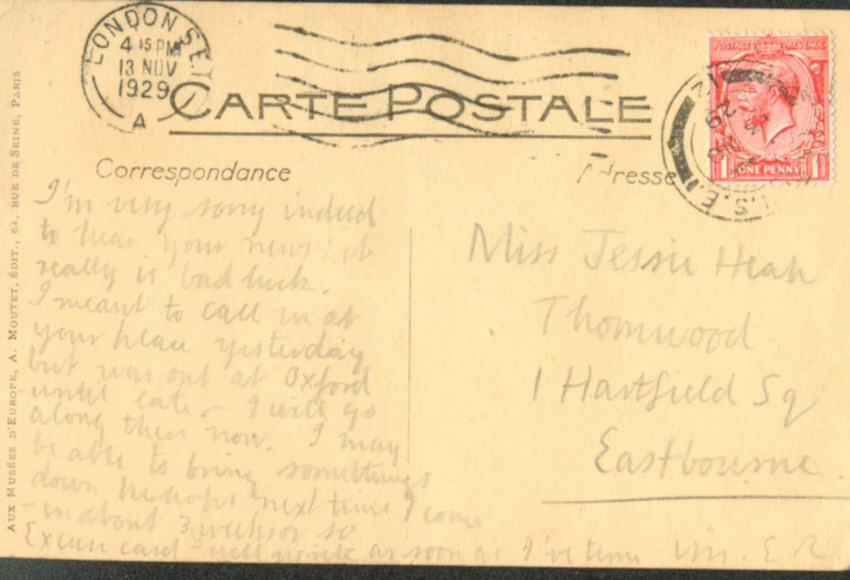 LONDON S.E.1
4 15 PM
13 NOV
1929
A
CARTE POSTALE
POSTAGE REVENUE
ONE PENNY
Correspondance
Adresse
AUX MUSÉES D'EUROPE, A. MOUTET, ÉDIT., 64, RUE DE SEINE, PARIS
I'm very sorry indeed
to hear your news it
really is bad luck.
I meant to call in at
your place yesterday
but was out at Oxford
until late - I will go
along there now. I may
be able to bring somethings
down perhaps next time I come
- in about 3 weeks or so
Excuse card - will write as soon as I've time E.R.
Miss Jessie Heah
Thornwood
1 Hartfield Sq
Eastbourne